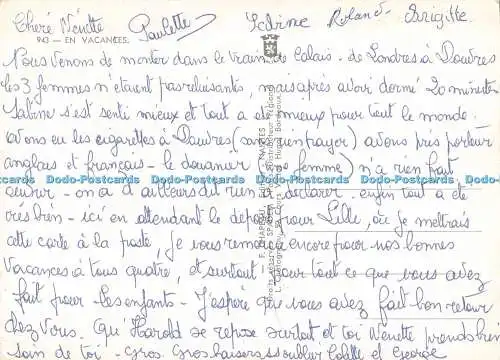 Chère Nénette Paulette Sabine Roland. Brigitte
943 — EN VACANCES.
Nous venons de monter dans le train de Calais. de Londres à Douvres
les 3 femmes n'étaient pas reluisantes, mais après avoir dormi 20 minutes
Sabine s'est senti mieux et tout a été mieux pour tout le monde.
avons eu les cigarettes à Douvres (sans rien payer) avons pris porteur
anglais et français - le douanier (une femme) n'a rien fait
ouvrir - on a d'ailleurs dit rien à déclarer. enfin tout a été
très bien - ici en attendant le départ pour Lille, où je mettrais
cette carte à la poste, je vous remercie encore pour nos bonnes
vacances à tous quatre, et surtout pour tout ce que vous avez
fait pour les enfants - J'espère que vous avez fait bon retour
chez vous. Que Harold se repose surtout et toi Nénette prends bien
soin de toi - Gros. Gros baisers, oublier Colette et George
Dodo-Postcards Dodo-Postcards Dodo-Postcards Dodo-Postcards Dodo-Postcards
F. CHAPEAU, Editeur, NANTES